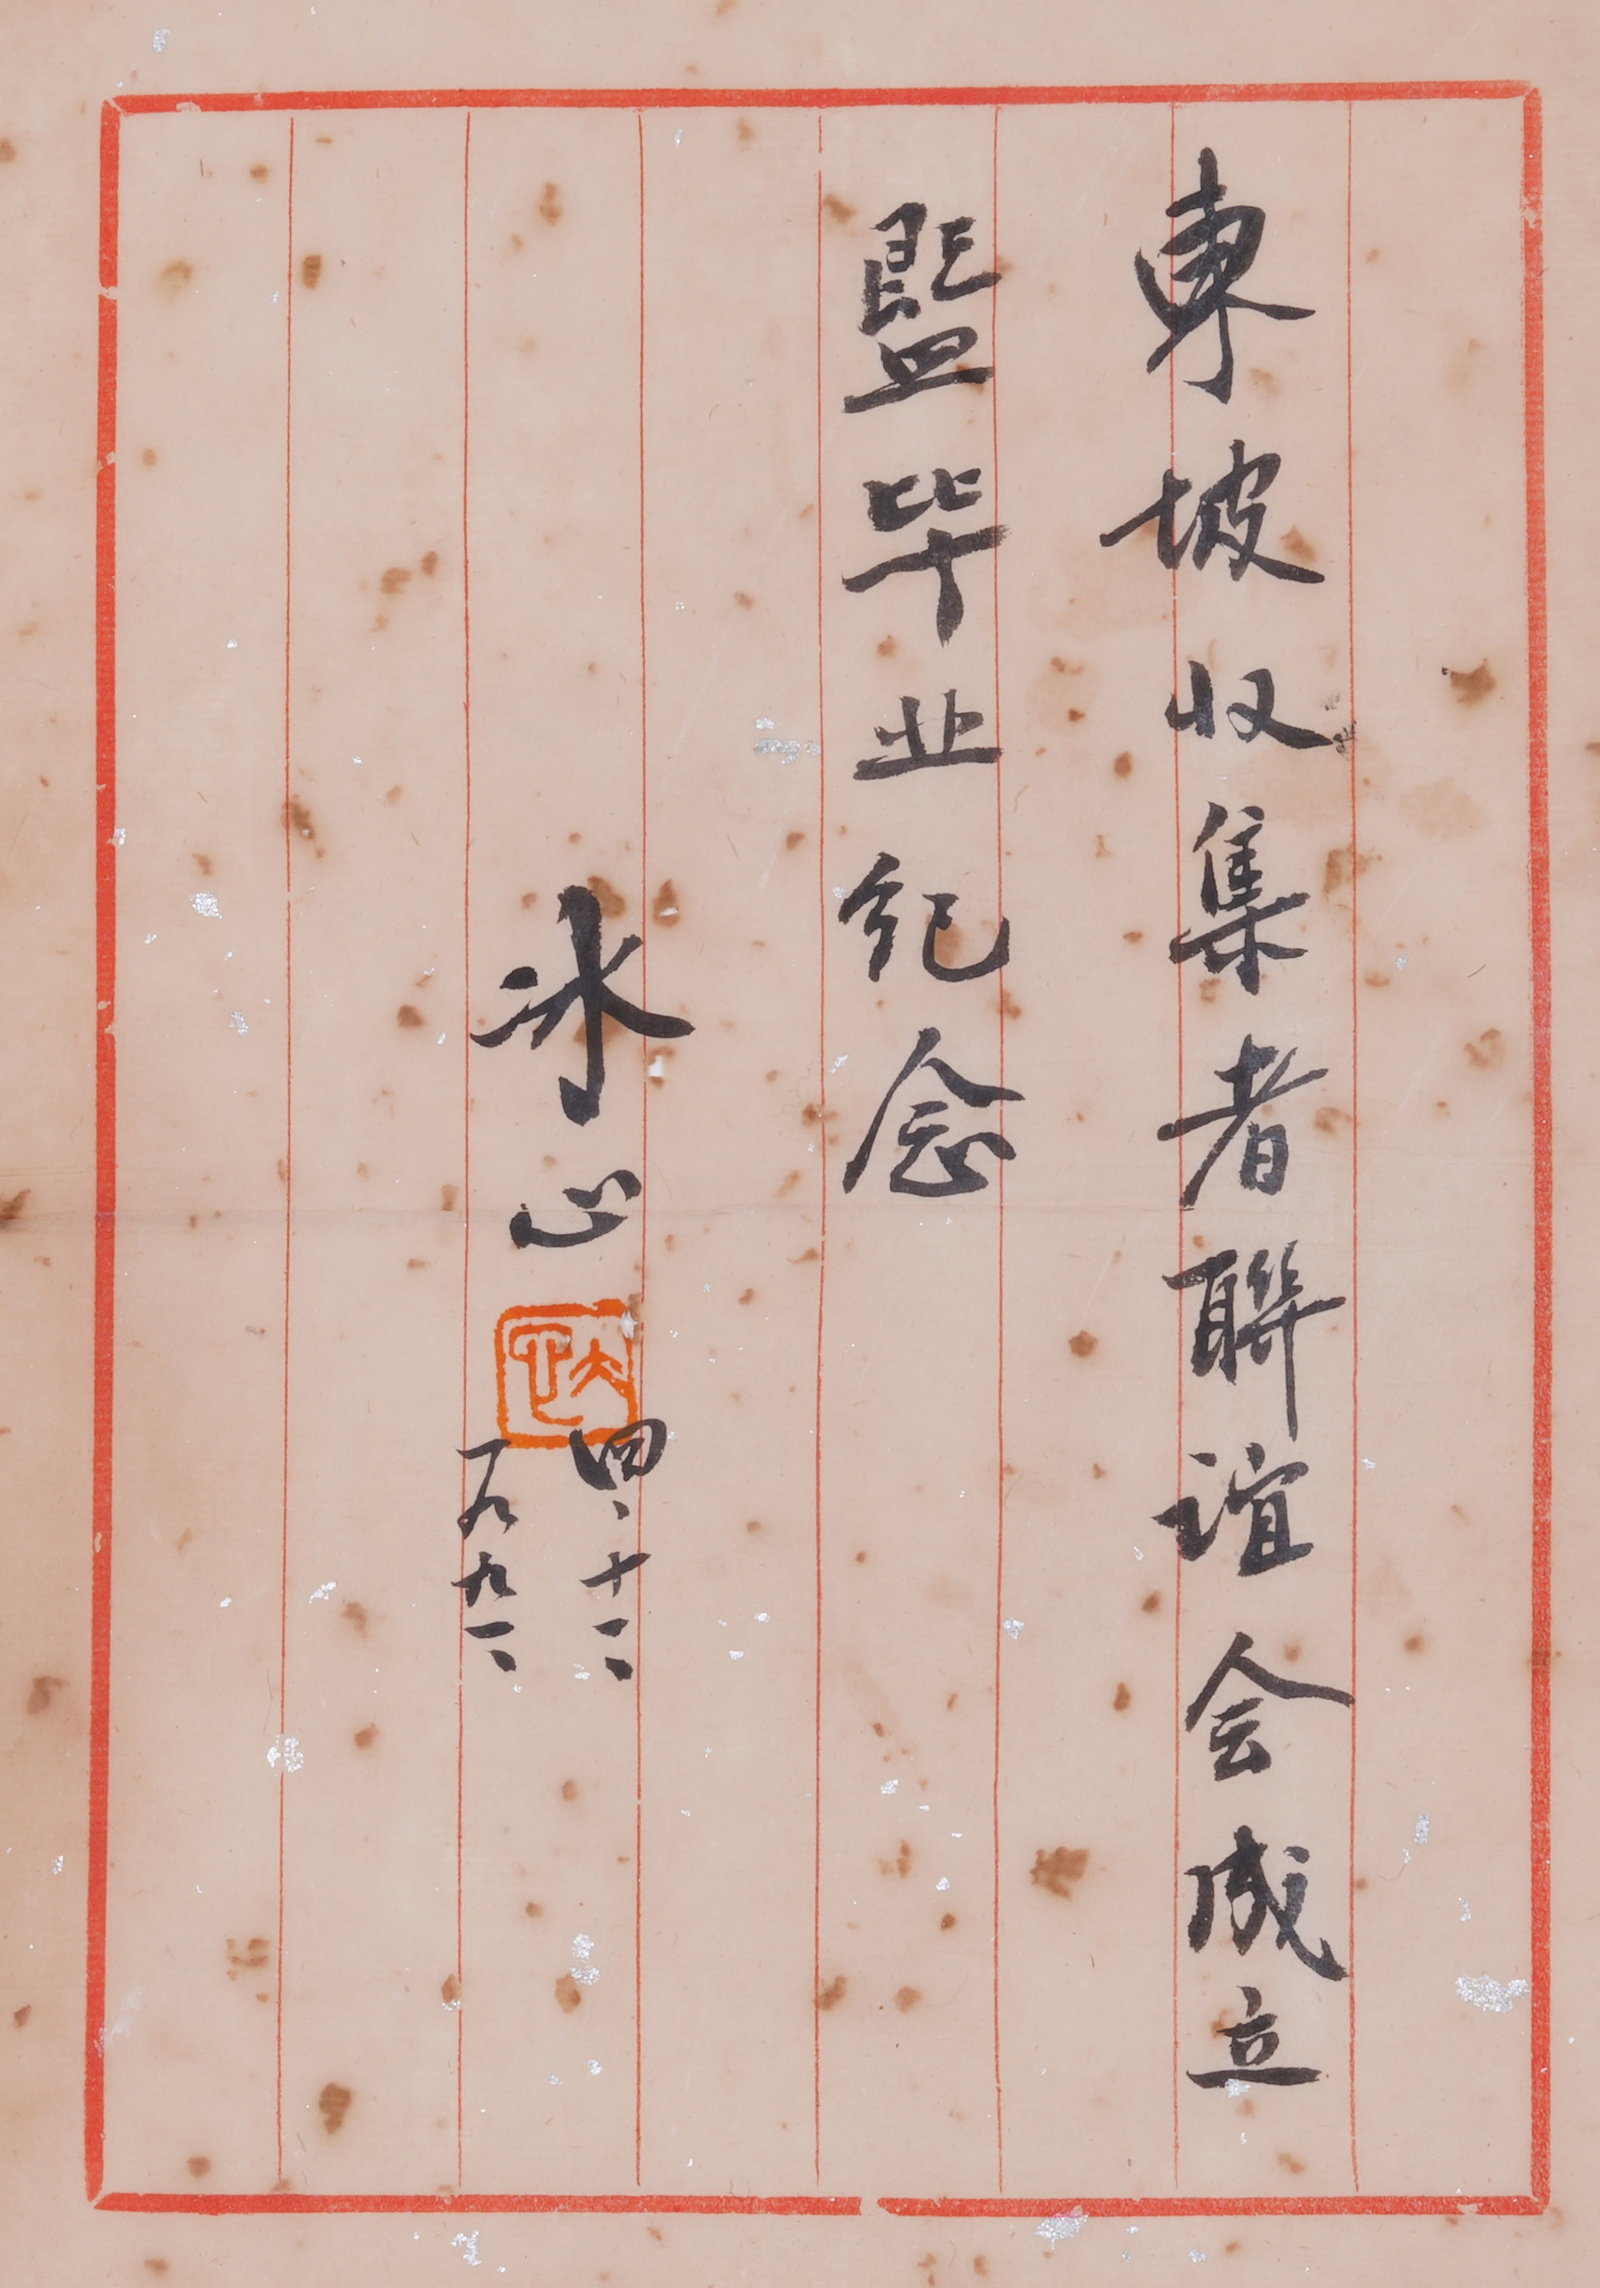 東坡収集者聯誼会成立
暨毕业纪念
冰心
四、十二、
一九九一、